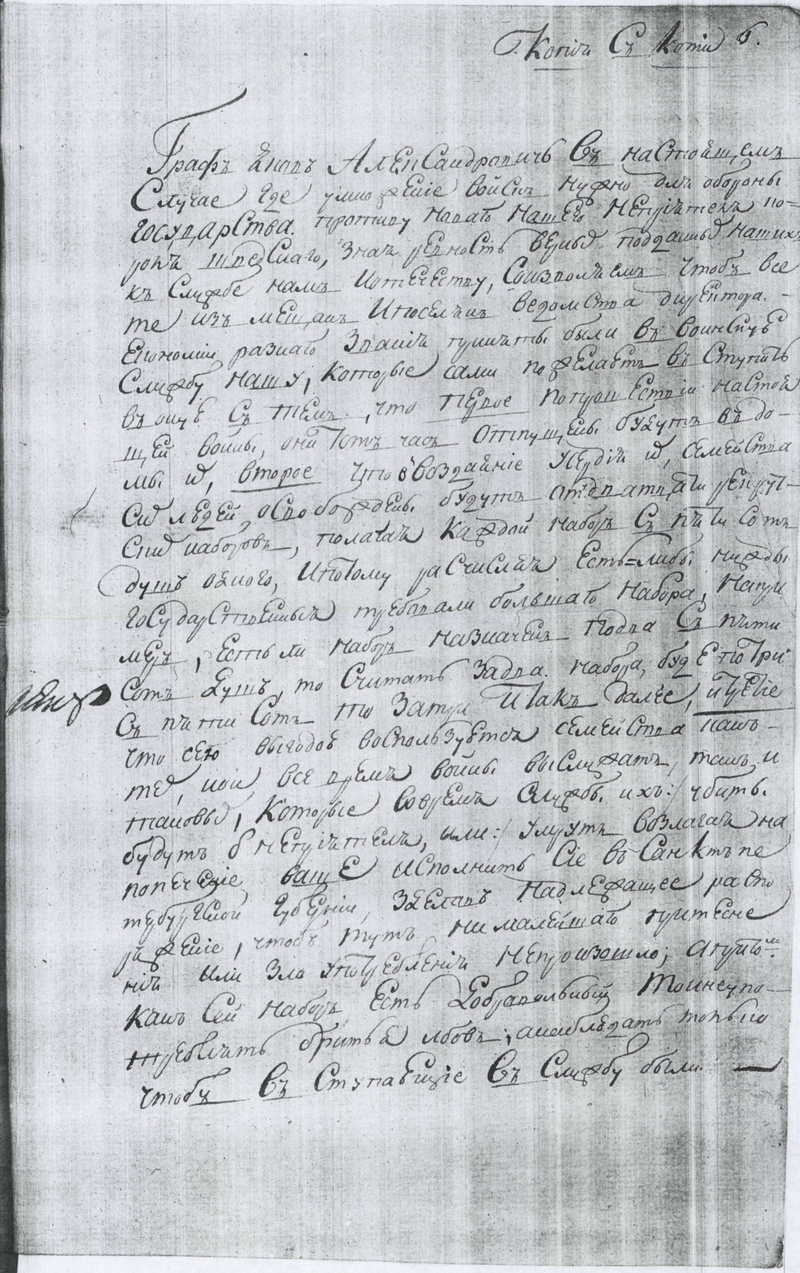 Копія Съ копіи б.
Графъ Яковъ Александровичь Въ настоящемъ
Случае где умножение войскъ нужно для обороны
государства. противу новаго нашего неприятеля ко=
роля шведскаго, зная ревность верныхъ подданныхъ нашихъ
къ Службе намъ и отечеству, Соизволяемъ чтобъ все
те изъ мещанъ и поселянъ ведомства директора.
Економии разнаго звания приняты были въ воинскую
Службу нашу, которые сами пожелаютъ въ Ступить
въ оную Съ темъ, что первое по прошествии настоя
щей войны, они тотъ часъ отпущены будутъ въ до-
мы ихъ, второе что в воздаяние усердия ихъ, семейства
Сихъ людей, освобождены будутъ отдвати рекрут-
скихъ наборовъ, полагая каждой наборъ Съ пяти Сотъ
душъ одного, и потому расчисляя Есть-либъ нужды
государственныя требовали большаго набора, напри
меръ, Естьли наборъ назначенъ подва Съ пяти
Сотъ душъ, то Считать задва набора, буде по три
Съ пяти Сотъ то За три и такъ далее, и третие
что сею выгодою воспользуются семейства какъ
тех, кои все время войны выслужатъ, такъ и
таковыхъ, которые во время службы ихъ:/ убиты
будутъ б неприятелемъ, или:/ умрутъ возлагая на
попечение ваше исполнить Сие въ Санктъ пе
тербургской губернии, зделавъ надлежащее распо
ряжение, чтобъ тутъ ни малейшаго притесне
ния или зло употребления не произошло; а притомъ
какъ Сей наборъ есть добровольный то и не упо-
треблять бритья лбовъ, а наблюдать только
чтобъ въ Ступающие въ Службу были